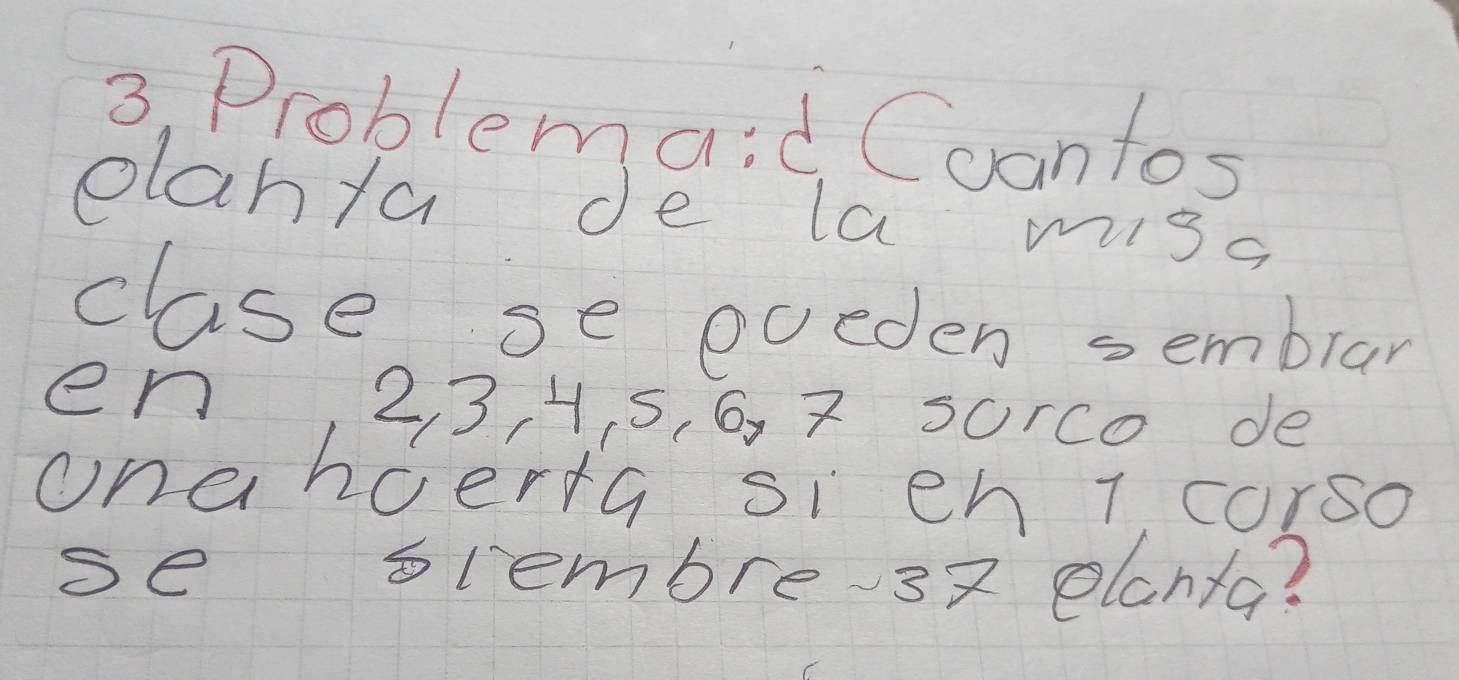 3, Problema:¿Cuantos
planta de la misa
clase se pueden sembrar
en, 2,3,4,5,6,7 surco de
una huerta si en 1, curso
se siembre-37 planta?